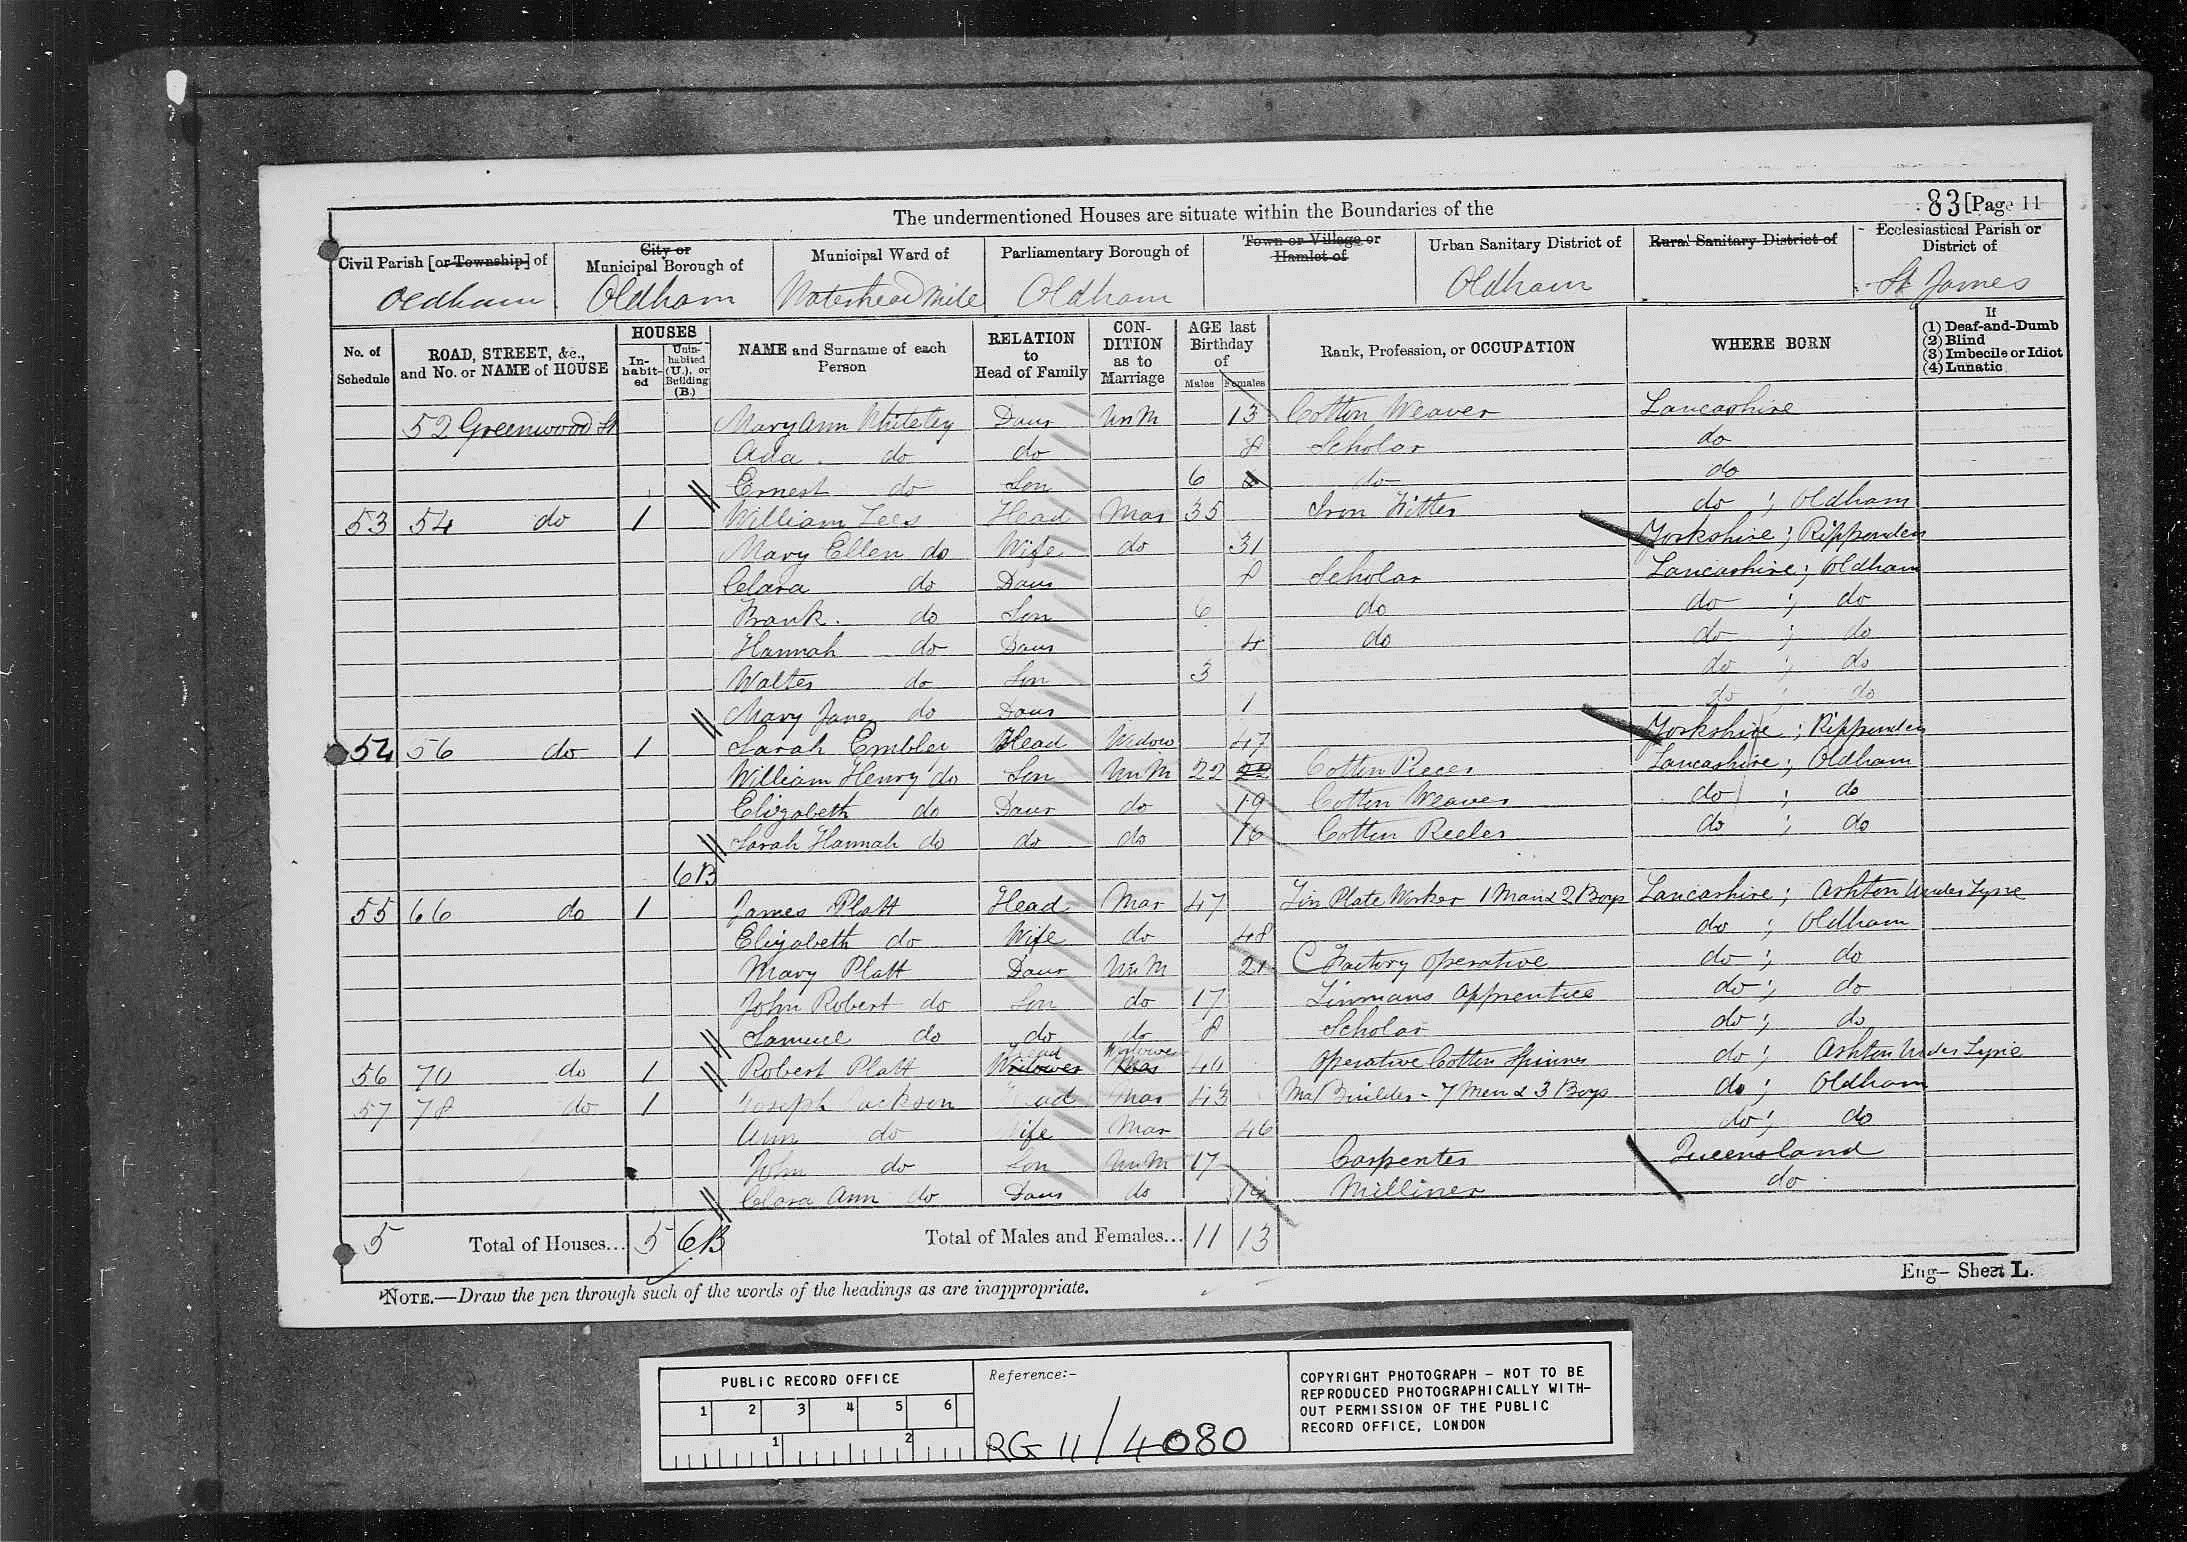 The undermentioned Houses are situate within the Boundaries of the
83 [Page 11
Civil Parish [or Township] of
Oldham
City or
Municipal Borough of
Oldham
Municipal Ward of
Waterhead Mill
Parliamentary Borough of
Oldham
Town or Village or
Hamlet of
Urban Sanitary District of
Oldham
Rural Sanitary District of
Ecclesiastical Parish or
District of
St James
No. of
Schedule
ROAD, STREET, &c.,
and No. or NAME of HOUSE
HOUSES
In-
habit-
ed
Unin-
habited
(U.), or
Building
(B.)
NAME and Surname of each
Person
RELATION
to
Head of Family
CON-
DITION
as to
Marriage
AGE last
Birthday
of
Males Females
Rank, Profession, or OCCUPATION
WHERE BORN
If
(1) Deaf-and-Dumb
(2) Blind
(3) Imbecile or Idiot
(4) Lunatic
52 Greenwood St Mary Ann Whiteley Daur UnM 13 Cotton Weaver Lancashire
Ada do do 8 Scholar do
Ernest do Son 6 do do
53 54 do 1 William Lees Head Mar 35 Iron Fitter do ; Oldham
Mary Ellen do Wife do 31 Yorkshire ; Ripponden
Clara do Daur 8 Scholar Lancashire ; Oldham
Frank do Son 6 do do ; do
Hannah do Daur 4 do do ; do
Walter do Son 3 do ; do
Mary Jane do Daur 1 do ; do
54 56 do 1 Sarah Embley Head Widow 47 Yorkshire ; Ripponden
William Henry do Son UnM 22 22 Cotton Piecer Lancashire ; Oldham
Elizabeth do Daur do 19 Cotton Weaver do ; do
Sarah Hannah do do do 16 Cotton Reeler do ; do
6B
55 66 do 1 James Platt Head Mar 47 Tin Plate Worker 1 Man & 2 Boys Lancashire ; Ashton Under Lyne
Elizabeth do Wife do 48 do ; Oldham
Mary Platt Daur UnM 21 C Factory Operative do ; do
John Robert do Son do 17 Tinmans Apprentice do ; do
Samuel do do do 8 Scholar do ; do
56 70 do 1 Robert Platt Widower Head Mar Widower 40 Operative Cotton Spinner do ; Ashton Under Lyne
57 78 do 1 Joseph Jackson Head Mar 43 Ma/ Builder - 7 Men & 3 Boys do ; Oldham
Ann do Wife Mar 46 do ; do
John do Son UnM 17 Carpenter Queensland
Clara Ann do Daur do Milliner do
5 Total of Houses... 5 6B Total of Males and Females... 11 13
NOTE.—Draw the pen through such of the words of the headings as are inappropriate.
Eng— Sheet L.
PUBLIC RECORD OFFICE
1 2 3 4 5 6
1 2
Reference:-
RG 11/4080
COPYRIGHT PHOTOGRAPH - NOT TO BE
REPRODUCED PHOTOGRAPHICALLY WITH-
OUT PERMISSION OF THE PUBLIC
RECORD OFFICE, LONDON